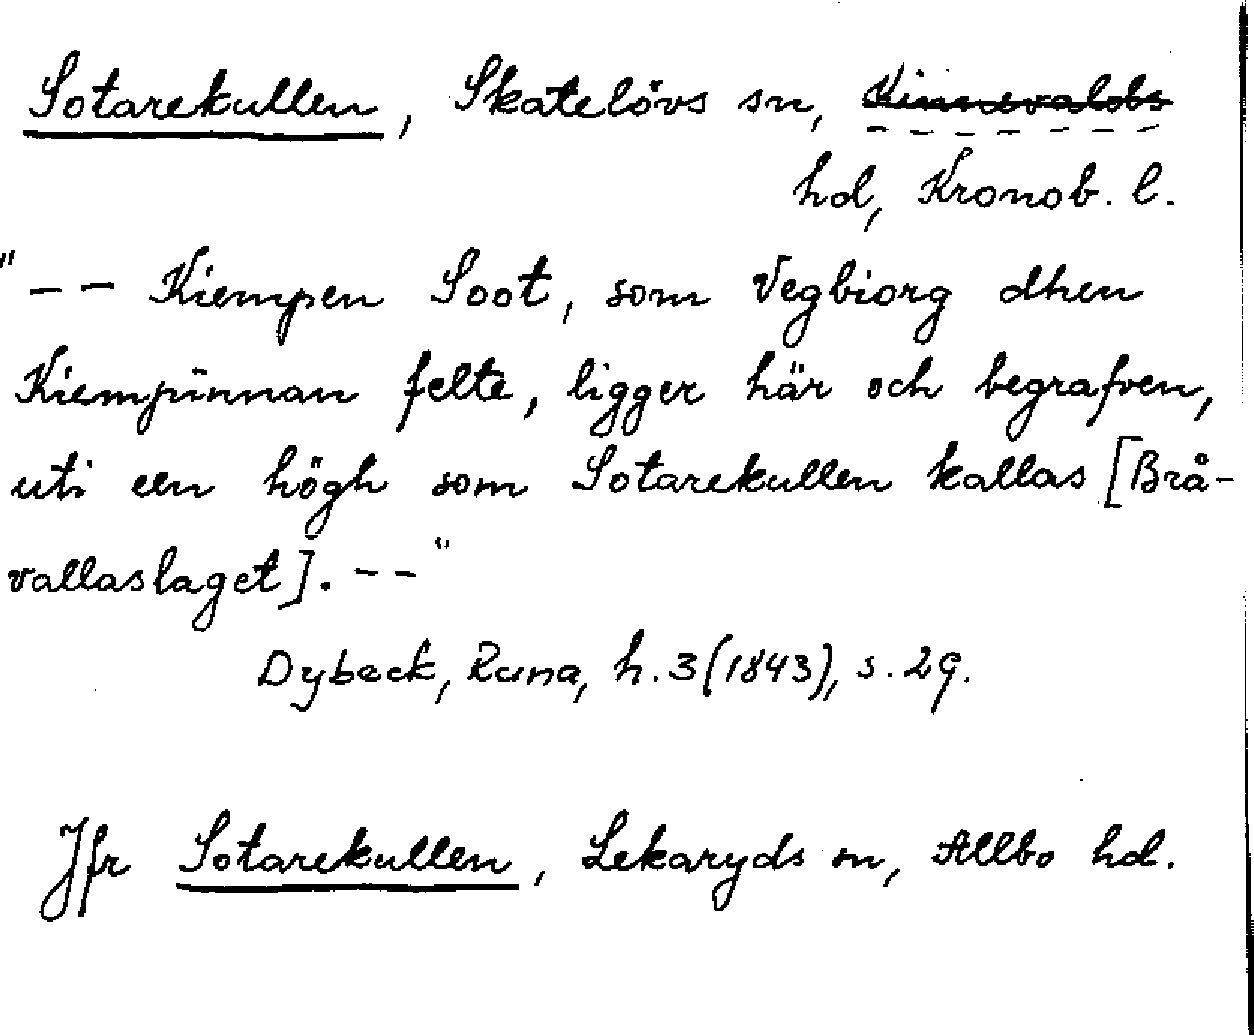 Sotarekullen, Skatelövs sn, Kinnevalds
hd, Kronob. l.
"-- Kiempen Soot, som Vegbiorg dhen
Kiempinnan felte, ligger här och begrafven,
uti een högh som Sotarekullen kallas [Brå-
vallaslaget]. --"
Dybeck, Runa, h. 3 (1843), s. 29.
Jfr Sotarekullen, Lekaryds sn, Allbo hd.